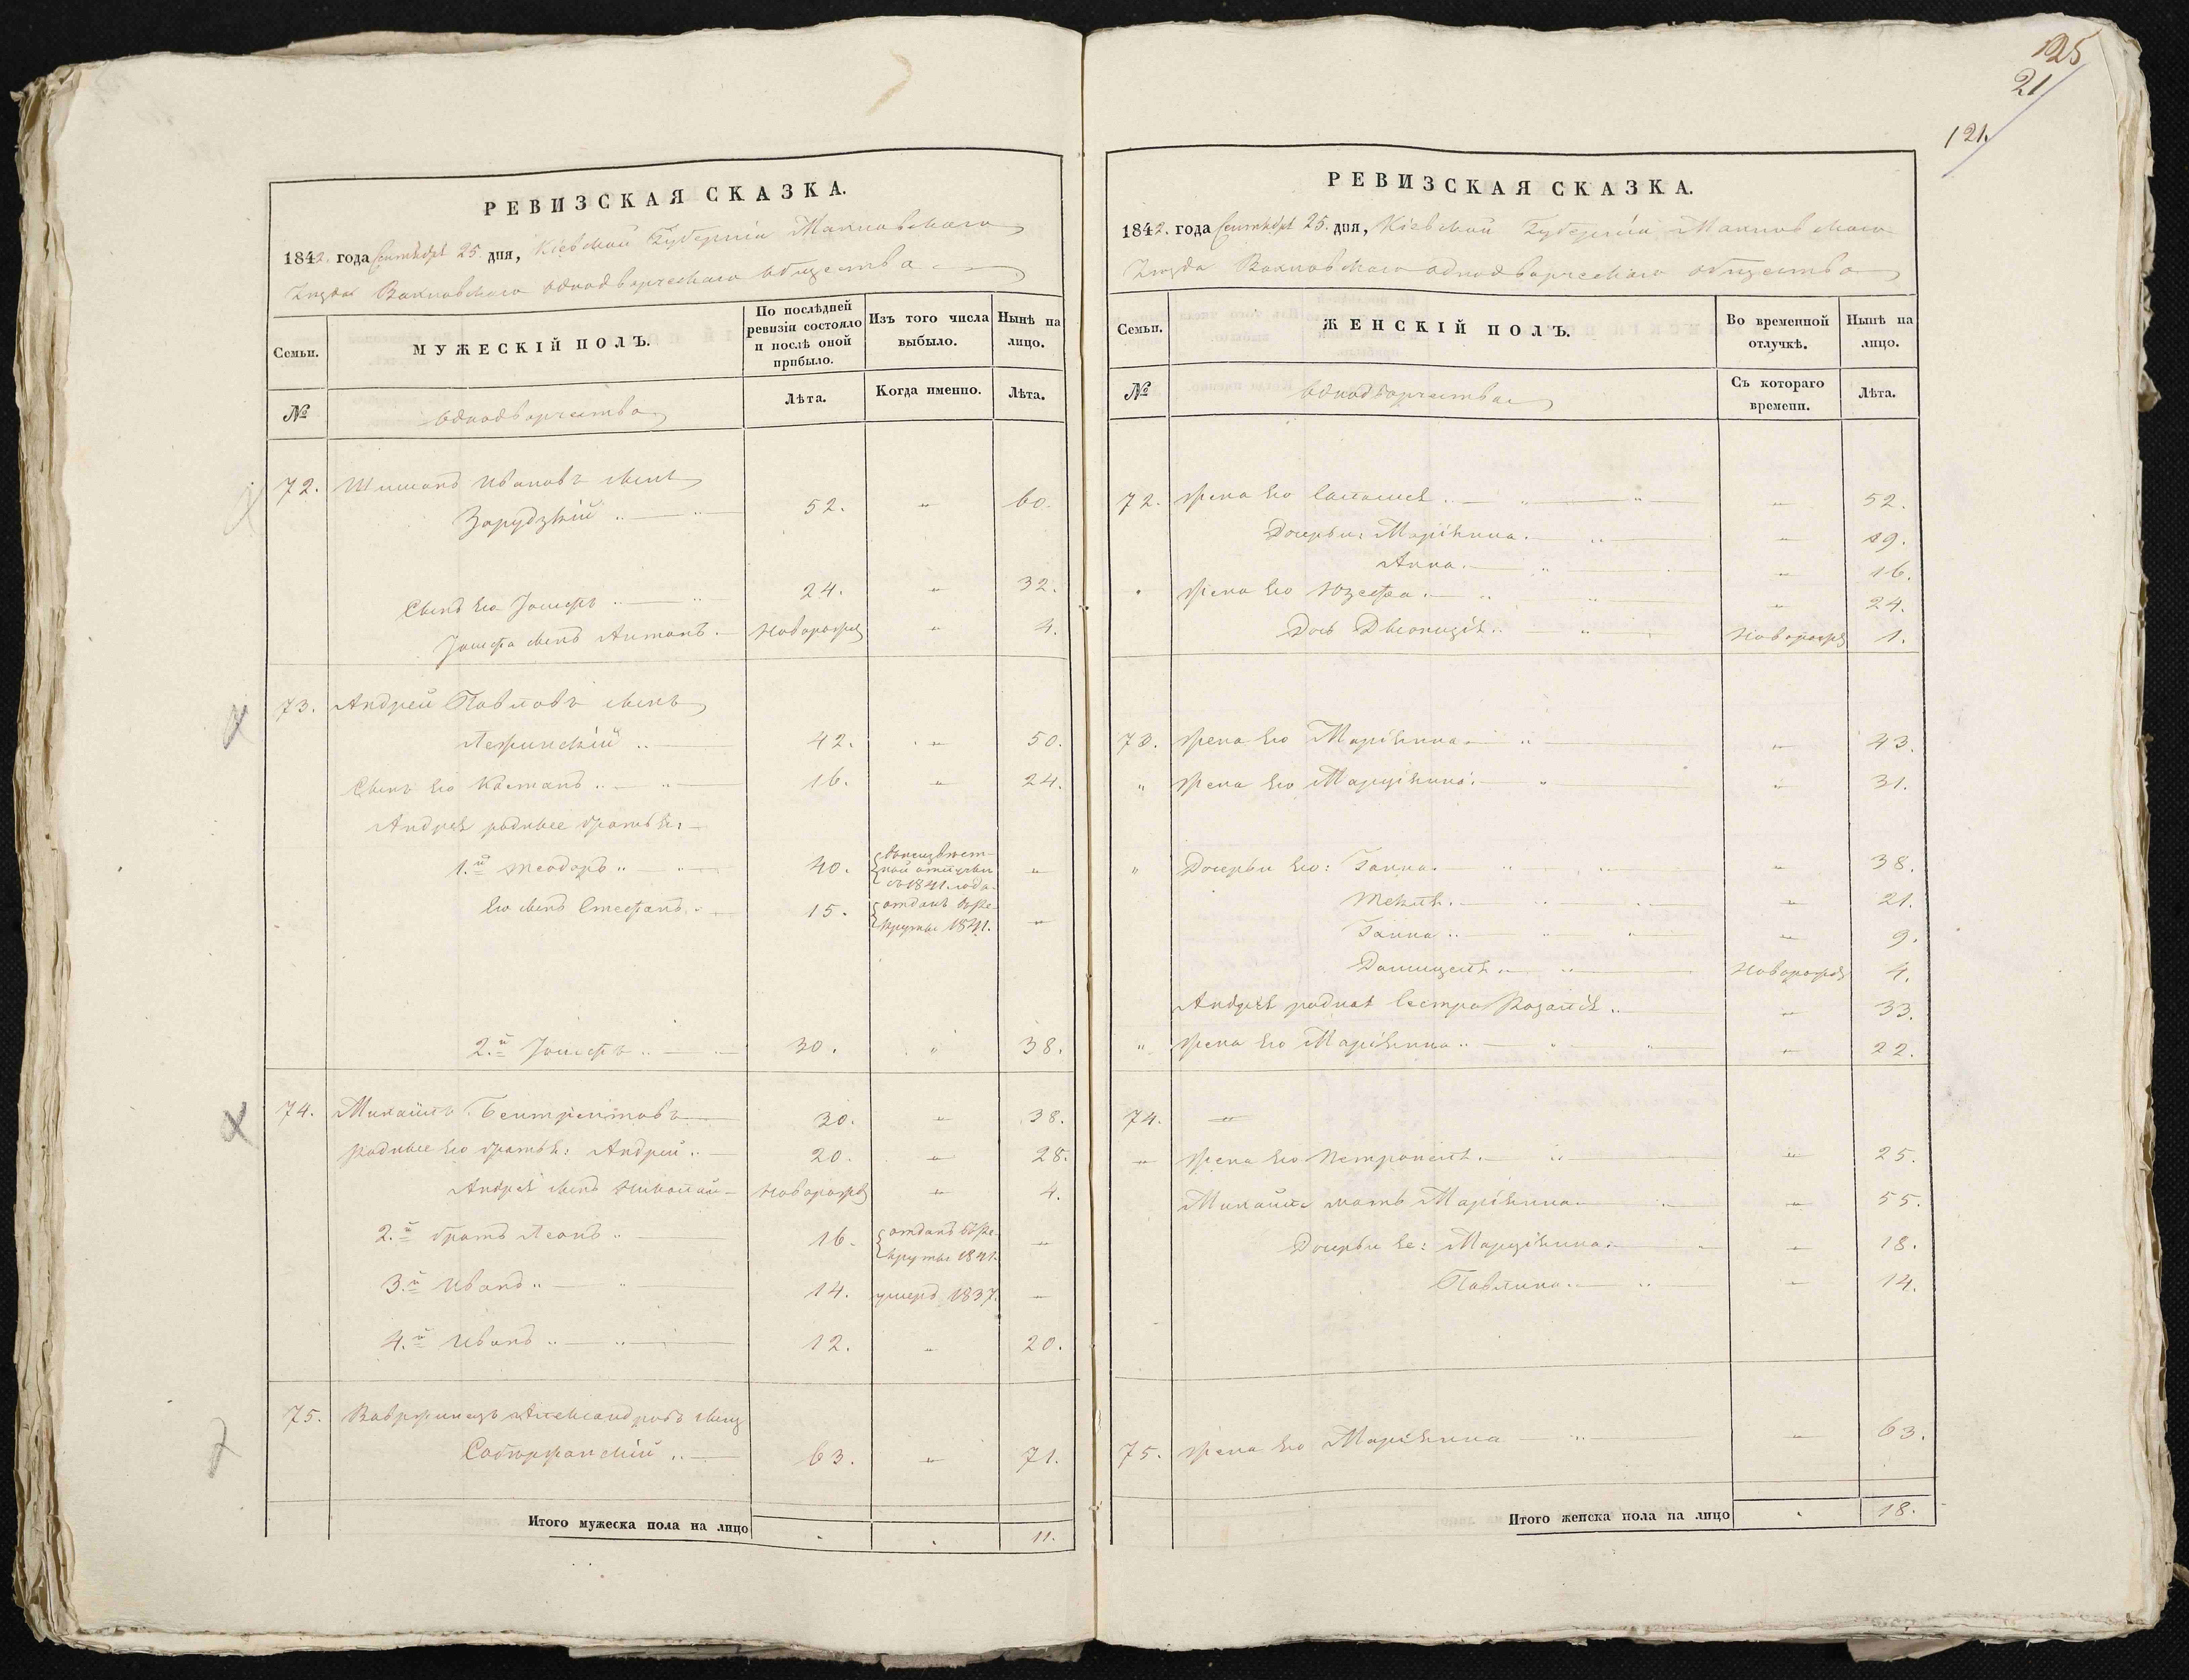 125
21
121.
РЕВИЗСКАЯ СКАЗКА.
1842. года Сентября 25. дня, Кіевской Губерніи Махновскаго
Уѣзда Вахновскаго однодворческаго общества
Семьи.
МУЖЕСКІЙ ПОЛЪ.
По послѣдней ревизіи состояло и послѣ оной прибыло.
Изъ того числа выбыло.
Нынѣ на лицо.
№
однодворчества
Лѣта.
Когда именно.
Лѣта.
72. Шимонъ Ивановъ сынъ
Зарудзкій 52. " 60.
Сынъ его Іосифъ 24. " 32.
Іосифа сынъ Антонъ. Новорожд " 4.
73. Андрей Павловъ сынъ
42. " 50.
Сынъ его 16. " 24.
Андрея родные братья:
1.й Теодоръ 40. въ неизвѣстной отлучки съ 1841 года "
Его сынъ Стефанъ 15. отданъ въ рекруты 1841. "
2.й Іосифъ 30. " 38.
74. Михайло 30. " 38.
родные его братья: Андрей 20. " 28.
Андрея сынъ Николай Новорожд " 4.
2.й братъ Леонъ 16. отданъ въ рекруты 1841. "
3.й Иванъ 14. умеръ 1837. "
4.й Иванъ 12. " 20.
75. Александровъ сынъ
63. " 71.
Итого мужеска пола на лицо . . 11.
РЕВИЗСКАЯ СКАЗКА.
1842. года Сентября 25. дня, Кіевской Губерніи Махновскаго
Уѣзда Вахновскаго однодворческаго общества
Семьи.
ЖЕНСКІЙ ПОЛЪ.
Во временной отлучкѣ.
Нынѣ на лицо.
№
однодворчества
Съ котораго времени.
Лѣта.
72. Жена его Саломея " 52.
Дочери: Маріянна " 19.
Анна " 16.
Жена его Юзефа " 24.
Дочь Новорожд 1.
73. Жена его Маріянна " 43.
" Жена его Марціянна " 31.
" Дочери его: Ганна " 38.
Текля " 21.
Ганна " 9.
Домицеля Новорожд 4.
Андрея родная сестра Розалія " 33.
" Жена его Маріянна " 22.
74. "
" Жена его Петронеля " 25.
Михайла мать Маріянна " 55.
Дочери ее: Марціянна " 18.
Павлина " 14.
75. Жена его Маріянна " 63.
Итого женска пола на лицо . 18.